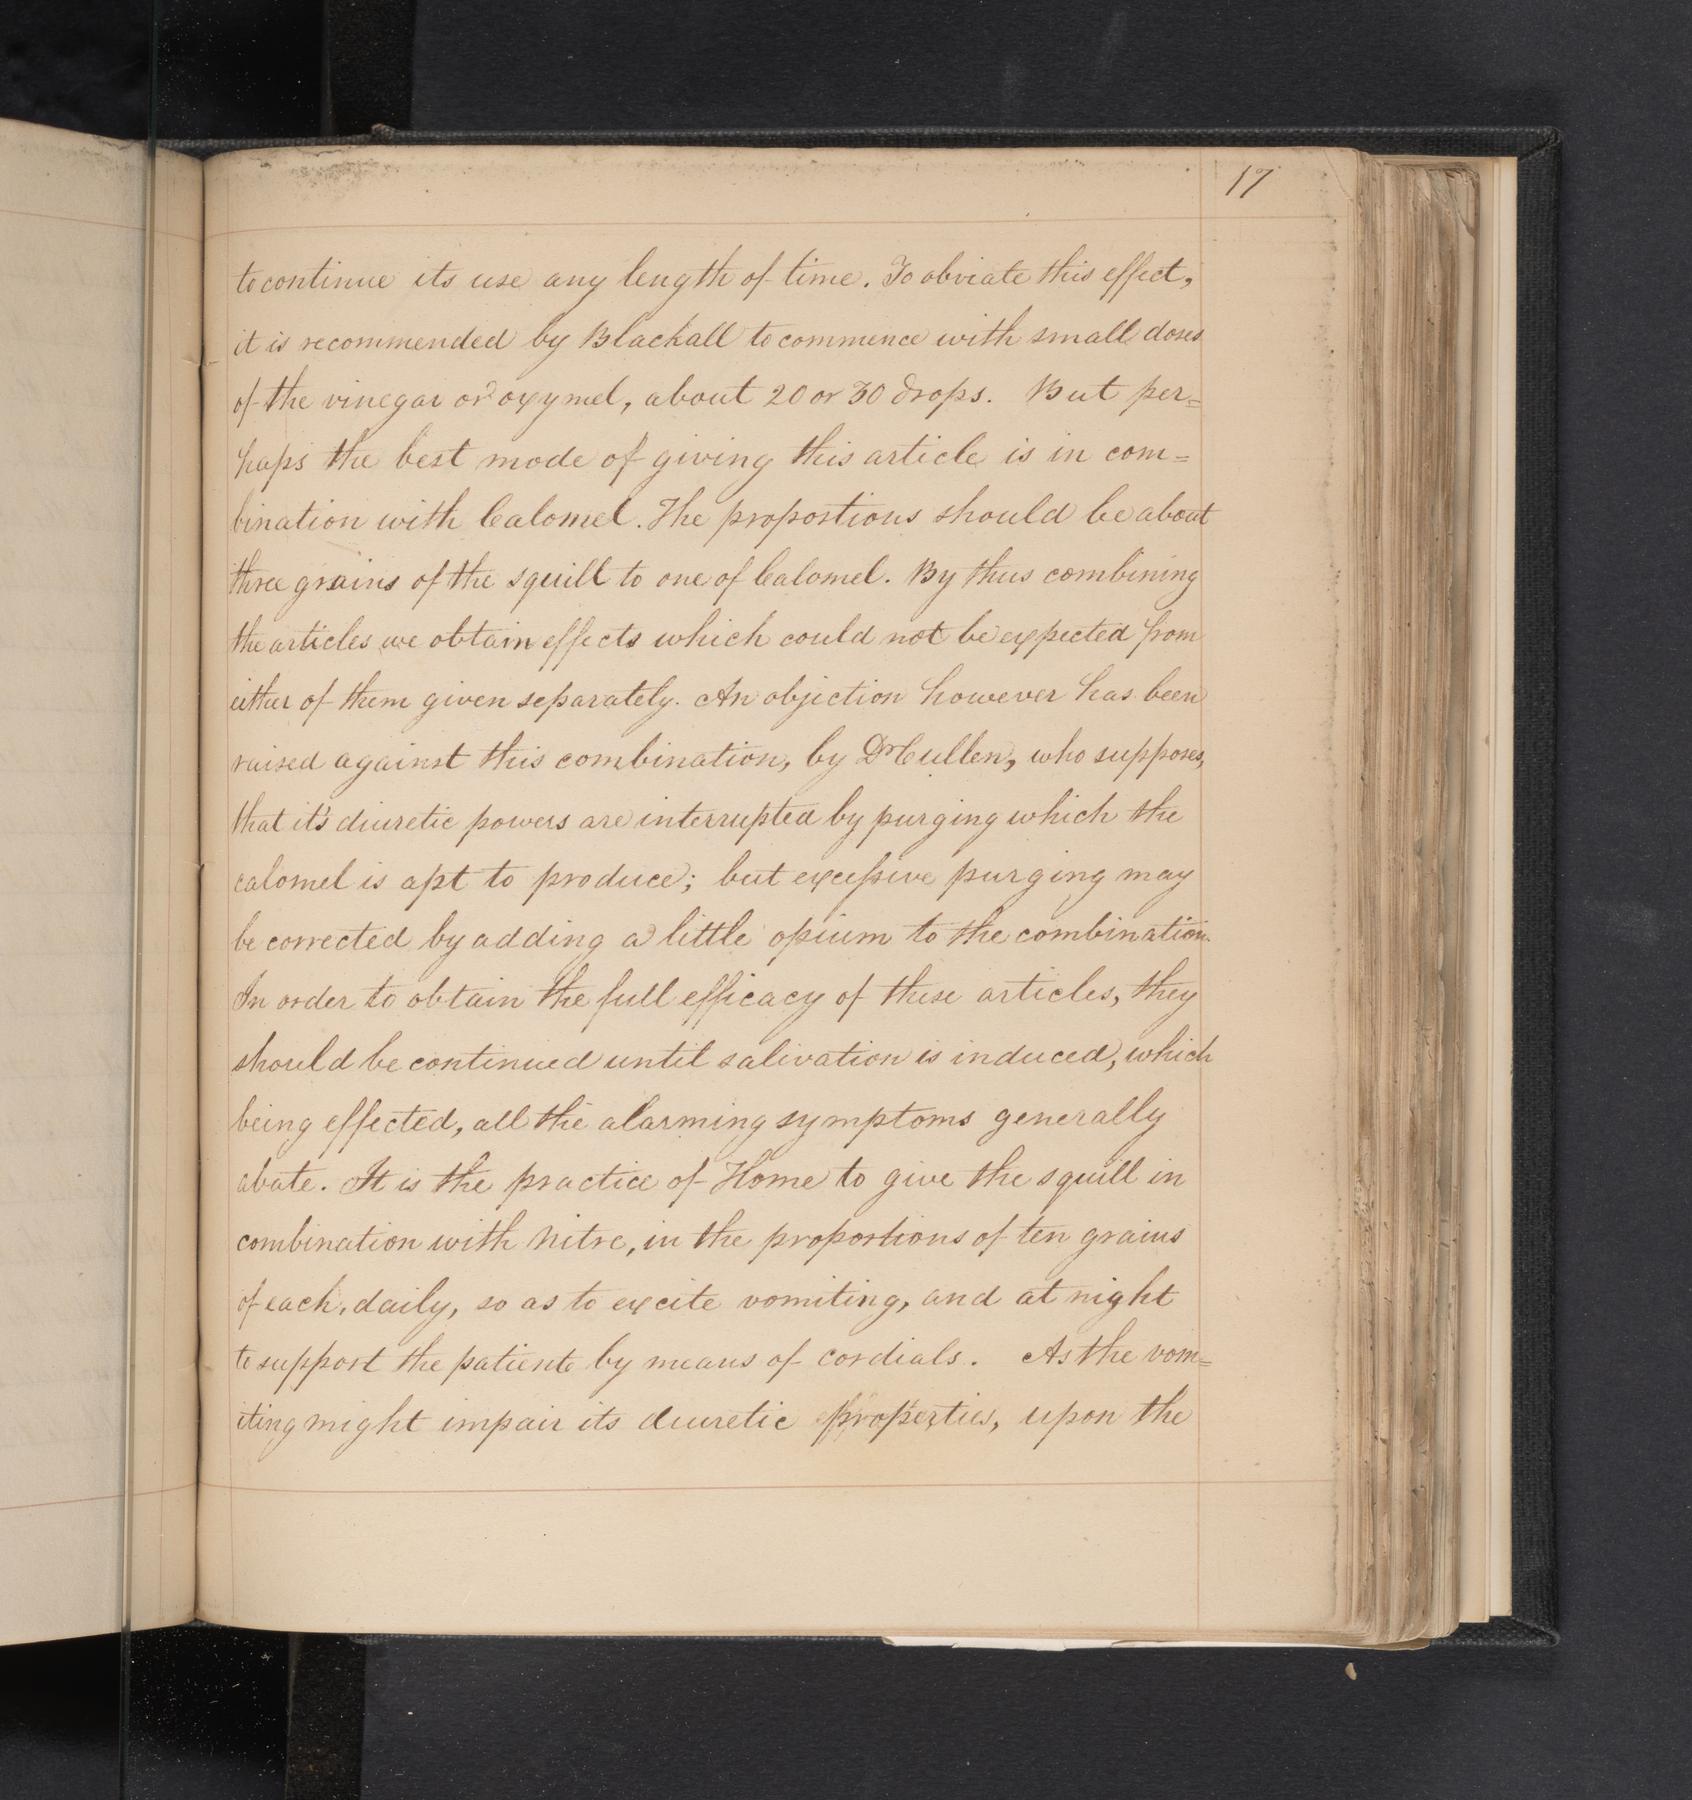 17
to continue its use any length of time. To obviate this effect,
it is recommended by Blackall to commence with small doses
of the vinegar or oxymel, about 20 or 30 drops. But per=
haps the best mode of giving this article is in com=
bination with Calomel. The proportions should be about
three grains of the squill to one of Calomel. By thus combining
the articles we obtain effects which could not be expected from
either of them given separately. An objection however has been
raised against this combination, by Dr Cullen, who supposes,
that it's diuretic powers are interrupted by purging which the
calomel is apt to produce; but excessive purging may
be corrected by adding a little opium to the combination.
In order to obtain the full efficacy of these articles, they
should be continued until salivation is induced, which
being effected, all the alarming symptoms generally
abate. It is the practice of Home to give the squill in
combination with Nitre, in the proportions of ten grains
of each, daily, so as to excite vomiting, and at night
to support the patient by means of cordials. As the vom=
iting might impair its diuretic properties, upon the